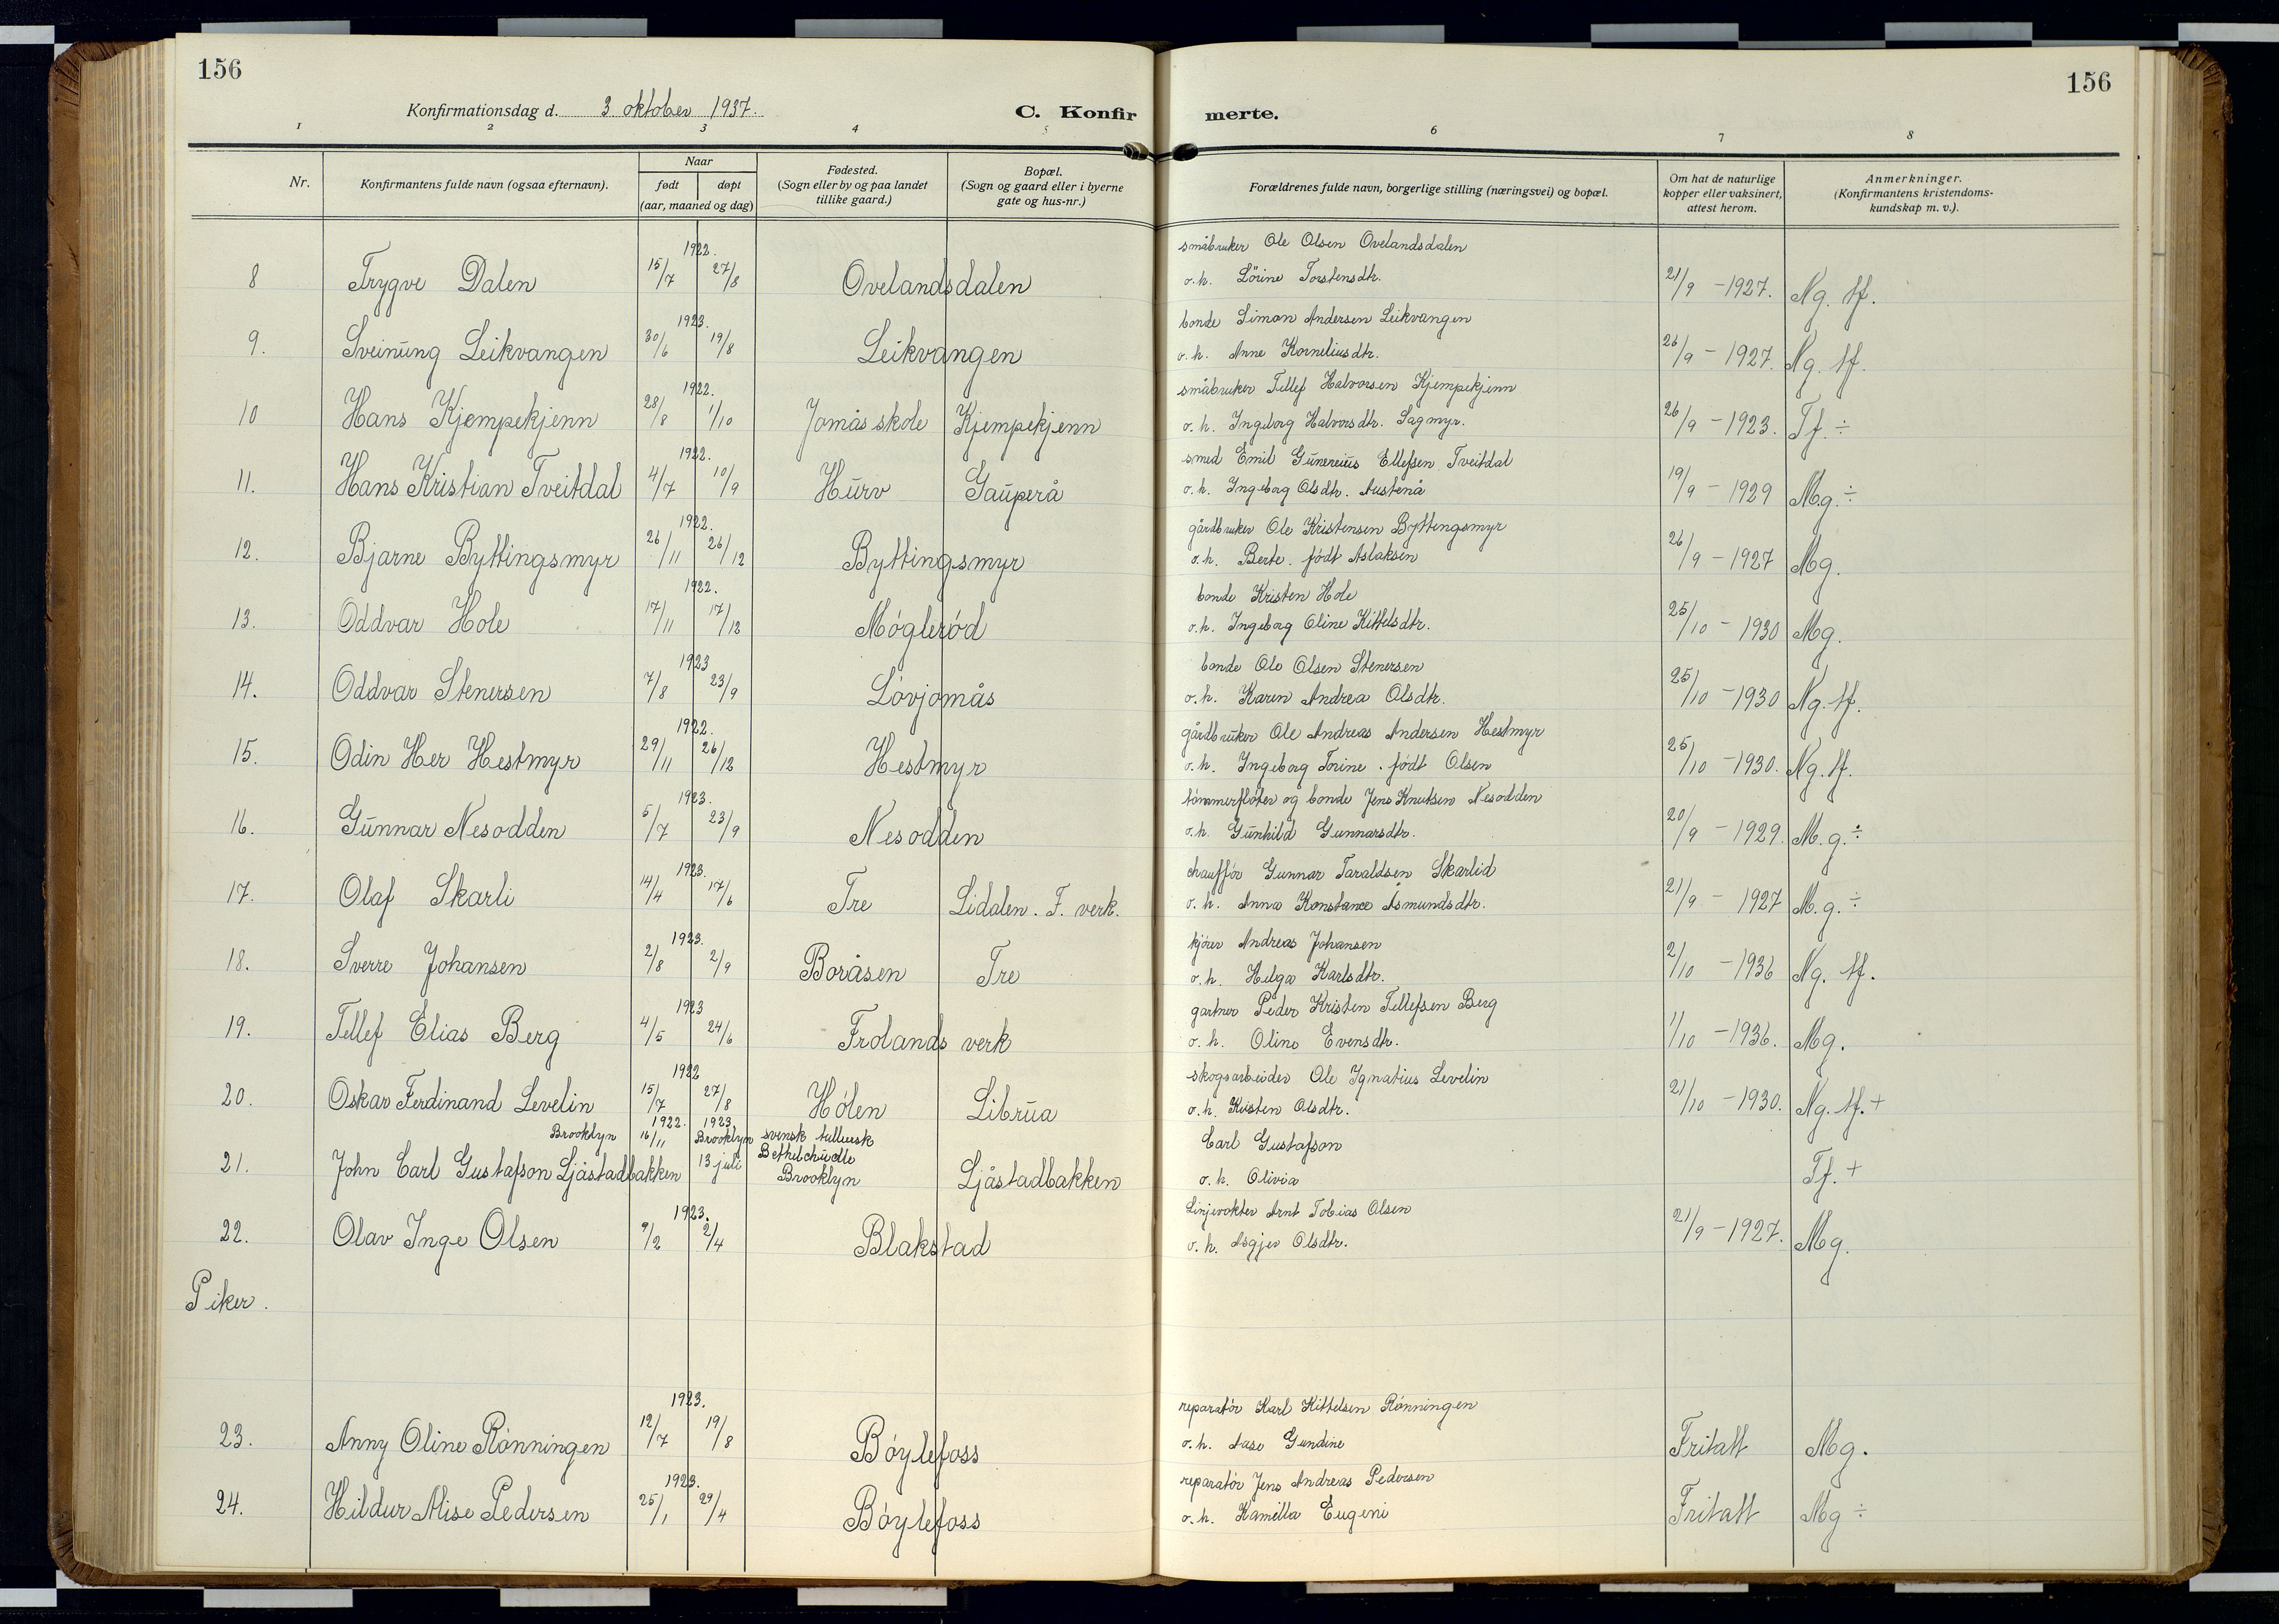 156
156
Konfirmationsdag d. 3 oktober 1937.
C. Konfirmerte.
1 2 3 4 5 6 7 8
Nr.
Konfirmantens fulde navn (ogsaa efternavn).
Naar
født døpt
(aar, maaned og dag)
Fødested.
(Sogn eller by og paa landet
tillike gaard.)
Bopæl.
(Sogn og gaard eller i byerne
gate og hus-nr.)
Forældrenes fulde navn, borgerlige stilling (næringsvei) og bopæl.
Om hat de naturlige
kopper eller vaksinert,
attest herom.
Anmerkninger.
(Konfirmantens kristendoms-
kundskap m. v.).
1922. småbruker Ole Olsen Ovelandsdalen
8 Trygve Dalen 15/7 27/8 Ovelandsdalen o.h. Lörine Torstensdtr. 21/9 - 1927. Ng. tf.
1923. bonde Simon Andersen Leikvangen
9. Sveinung Leikvangen 30/6 19/8 Leikvangen o.h. Anne Korneliusdtr. 26/9 - 1927. Ng. tf.
1922. småbruker Tellef Halvorsen Kjempekjenn
10 Hans Kjempekjenn 28/8 1/10 Jomås skole Kjempekjenn o.h. Ingeborg Halvorsdtr. Sagmyr. 26/9 - 1923. Tf. ÷
1922. smed Emil Gunereius Ellefsen Tveitdal
11. Hans Kristian Tveitdal 4/7 10/9 Hurv Gauperå o.h. Ingeborg Olsdtr. Austenå 19/9 - 1929 Mg. ÷
1922. gårdbruker Ole Kristensen Byttingsmyr
12. Bjarne Byttingsmyr 26/11 26/12 Byttingsmyr o.h. Berte. født Aslaksen 26/9 - 1927 Mg.
1922. bonde Kristen Hole
13. Oddvar Hole 17/11 17/12 Møglerød o.h. Ingeborg Oline Kittelsdtr. 25/10 - 1930 Mg.
1923 bonde Ole Olsen Stenersen
14. Oddvar Stenersen 7/8 23/9 Løvjomås o.h. Karen Andrea Olsdtr. 25/10 - 1930 Ng. tf.
1922. gårdbruker Ole Andreas Andersen Hestmyr
15. Odin Her Hestmyr 29/11 26/12 Hestmyr o.h. Ingeborg Torine. født Olsen 25/10 - 1930. Ng. tf.
1923. tømmerfløter og bonde Jens Knutsen Nesodden
16. Gunnar Nesodden 5/7 23/9 Nesodden o.h. Gunhild Gunnarsdtr. 20/9 - 1929. M.g. ÷
1923. chauffør Gunnar Taraldsen Skarlid
17. Olaf Skarli 14/4 17/6 Tre Lidalen. F. verk. o.h. Anna Konstance Åsmundsdtr. 21/9 - 1927 M.g. ÷
1923. kjører Andreas Johansen
18. Sverre Johansen 2/8 2/9 Boråsen Tre o.h. Helga Karlsdtr. 2/10 - 1936 Ng. tf.
1923 gartner Peder Kristen Tellefsen Berg
19. Tellef Elias Berg 4/5 24/6 Frolands verk o.h. Oline Evensdtr. 1/10 - 1936. Mg.
1922 skogsarbeider Ole Ignatius Levelin
20. Oskar Ferdinand Levelin 15/7 27/8 Hølen Librua o.h. Kristen Olsdtr. 21/10 - 1930. Ng. tf. +
1922. 1923.
Brooklyn 16/11 Brooklyn svensk Carl Gustafson
21. John Carl Gustafson Ljåstadbakken 13 juli Brooklyn Ljåstadbakken o.h. Olivia Tf. +
1923. Linjevokter Arnt Tobias Olsen
22. Olav Inge Olsen 9/2 2/4 Blakstad o.h. Asgjer Olsdtr. 21/9 - 1927. Mg.
Piker.
1923. reparatør Karl Kittelsen Rønningen
23. Anny Oline Rønningen 12/7 19/8 Bøylefoss o.h. Aase Gundine Fritatt Mg.
1923. reparatør Jens Andreas Pedersen
24. Hildur Alise Pedersen 25/1 29/4 Bøylefoss o.h. Kamilla Eugeni Fritatt Mg ÷